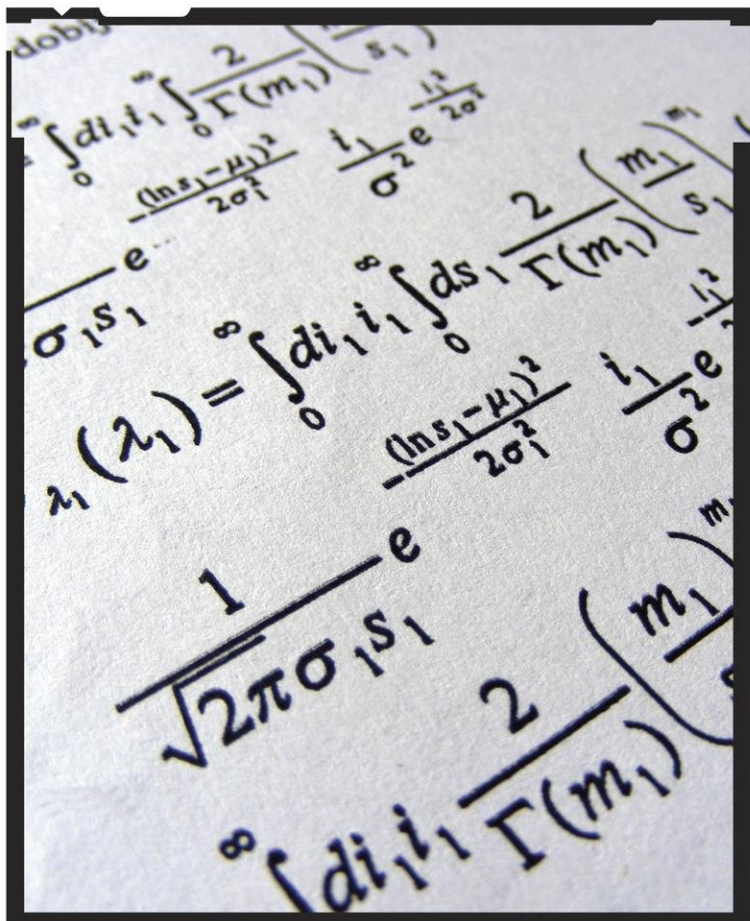 dobij
= ∫₀^∞ di₁ i₁ ∫₀^∞ 2/Γ(m₁) (m₁/s₁)
σ₁s₁ e^{-(ln s₁-μ₁)²/2σ₁²} i₁/σ² e^{-i₁²/2σ²}
λ₁(λ₁) = ∫₀^∞ di₁ i₁ ∫₀^∞ ds₁ 2/Γ(m₁) (m₁/s₁)^{m₁}
1/√2πσ₁s₁ e^{-(ln s₁-μ₁)²/2σ₁²} i₁/σ² e^{-i₁²}
∞∫ di₁ i₁ 2/Γ(m₁) (m₁